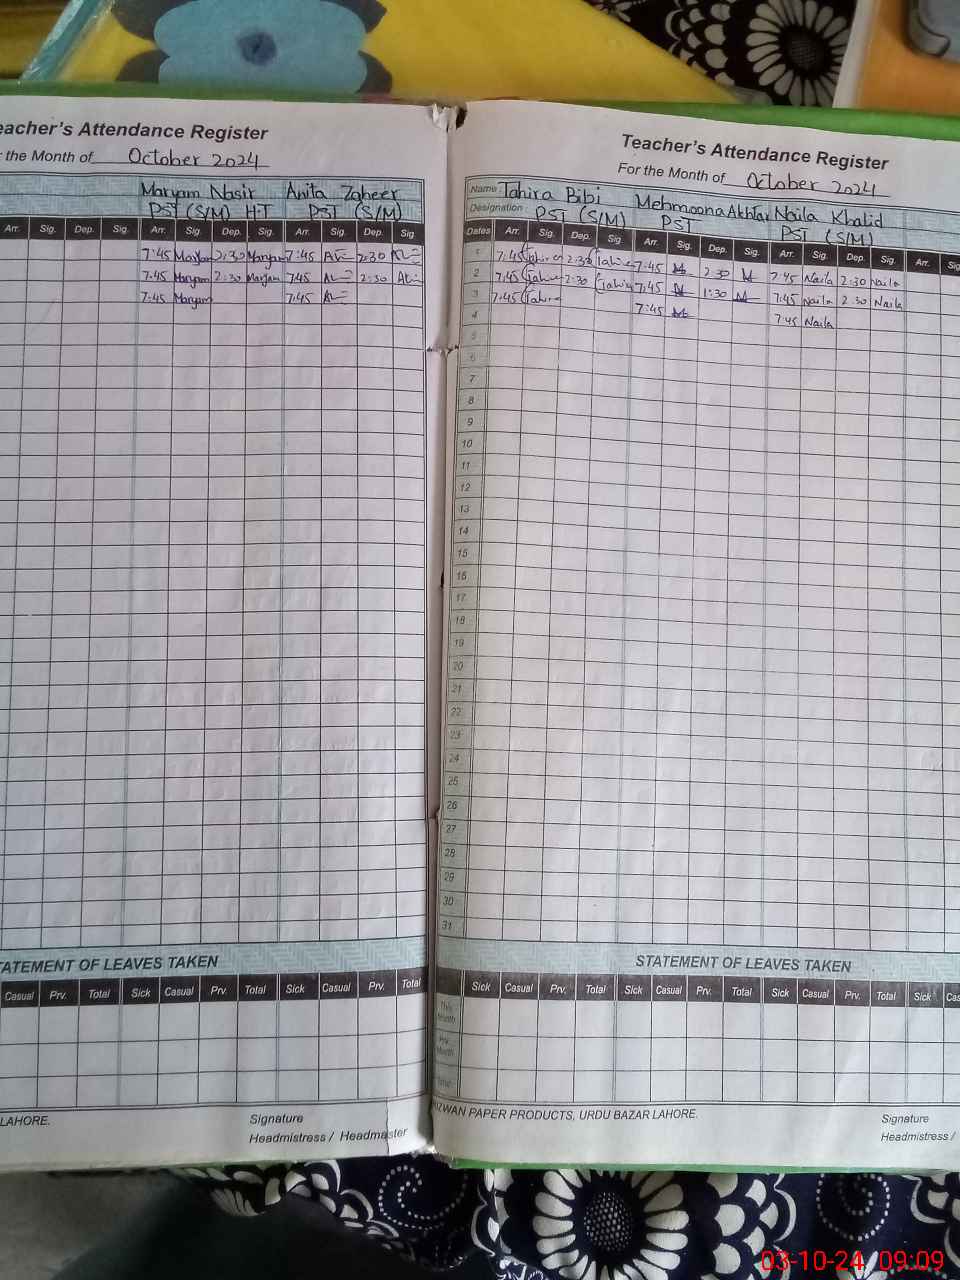 Teacher's Attendance Register
the Month of October 2024
Maryam Nasir Anita Zaheer
PST (S/M) H.T PST (S/M)
Arr. Sig. Dep. Sig. Arr. Sig. Dep. Sig. Arr. Sig. Dep. Sig
7:45 Maryam 2:30 Maryam 7:45 2:30
7:45 Maryam 2:30 Maryam 7:45 2:30
7:45 Maryam 7:45
STATEMENT OF LEAVES TAKEN
Casual Prv. Total Sick Casual Prv. Total Sick Casual Prv. Total
LAHORE.
Signature
Headmistress / Headmaster
Teacher's Attendance Register
For the Month of October 2024
Name: Tahira Bibi Mehmoona Akhtar Naila Khalid
Designation: PST (S/M) PST PST (S/M)
Dates Arr. Sig. Dep. Sig Arr. Sig. Dep. Sig. Arr. Sig. Dep. Sig. Arr. Sig.
1 7:45 Tahira 2:30 Tahira 7:45 2:30 7:45 Naila 2:30 Naila
2 7:45 Tahira 2:30 Tahira 7:45 1:30 7:45 Naila 2:30 Naila
3 7:45 Tahira 7:45 7:45 Naila
4
5
6
7
8
9
10
11
12
13
14
15
16
17
18
19
20
21
22
23
24
25
26
27
28
29
30
31
STATEMENT OF LEAVES TAKEN
Sick Casual Prv. Total Sick Casual Prv. Total Sick Casual Prv. Total Sick Cas
This Month
Prv. Month
Total
RIZWAN PAPER PRODUCTS, URDU BAZAR LAHORE.
Signature
Headmistress /
03-10-24 09:09